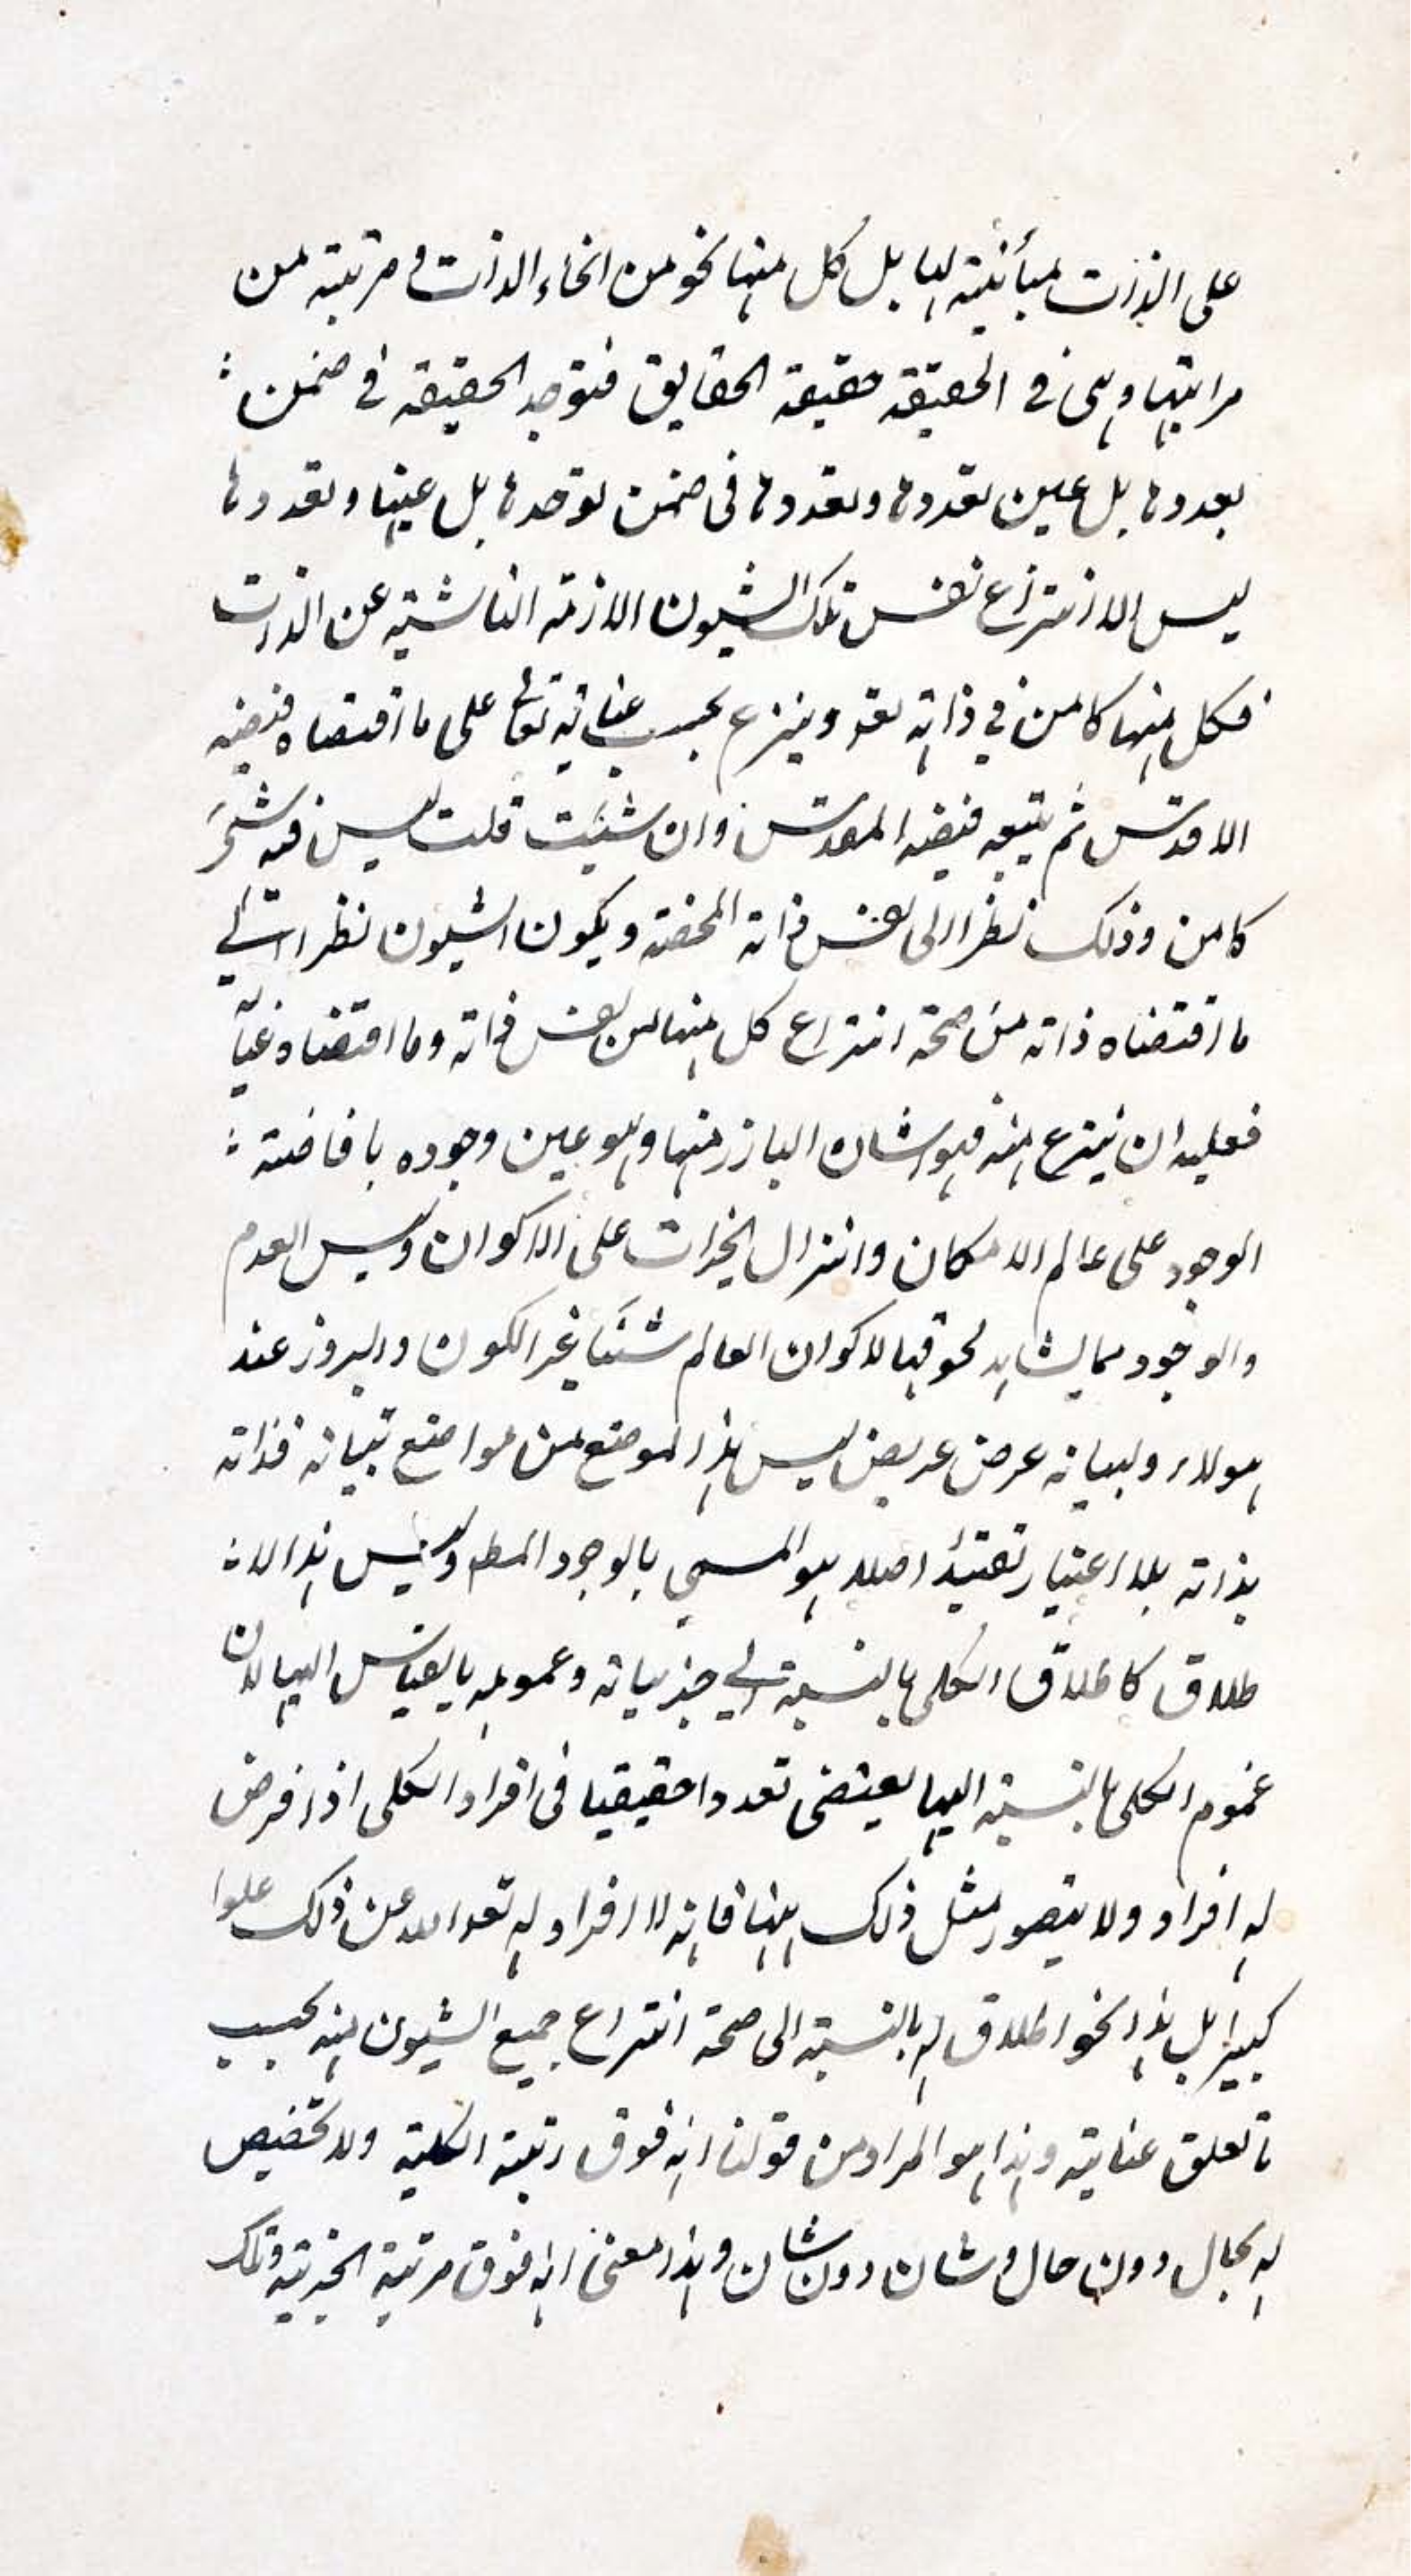 على الذات مبأينة لها بل كل منها نحو من انحاء الذات و مرتبة من
مراتبها وهى فى الحقيقة حقيقة الحقايق فتوحد الحقيقة فى ضمن
تعددها بل عين تعددها وتعددها فى ضمن توحدها بل عينها وتعددها
ليس الا انتزاع نفس تلك الشيون اللازمة الناشية عن الذات
فكل منها كامن في ذاته وينزع بحسب عنايته تعالى على ما اقتضاه فيضه
الاقدس ثم يتبعه فيضه المقدس وان شئت قلت ليس فيه شئ
كامن وذلك نظرا الى نفس ذاته المحضة ويكون الشيون نظرا الى
ما اقتضاه ذاته من صحة انتزاع كل منها من نفس ذاته وما اقتضاه عنايته
فعليه ان ينتزع منه فهو الشان البارز منها وهو عين وجوده بافاضة
الوجود على عالم الامكان وانتزال الخيرات على الاكوان وليس العدم
والوجود مما يشاهد لحوقها لاكوان العالم شئيا غير الكون والبروز عند
هولاء ولبيانه عرض عريض ليس هذا الموضع من مواضع تبيانه فذاته
بذاته بلا اعتبار تقييد اصلا هو المسمى بالوجود المط وليس هذا الا
طلاق كاطلاق الكلى بالنسبة الى جزئياته وعمومه بالقياس اليها لان
عموم الكلى بالنسبة اليها يقتضى تعددا حقيقيا فى افراد الكلى اذا فرض
له افراد ولا يتصور مثل ذلك ههنا فانه لا افراد له تعالى الله عن ذلك علوا
كبيرا بل هذا نحو اطلاق له بالنسبة الى صحة انتزاع جميع الشيون منه بحسب
تعلق عنايته وهذا هو المراد من قولنا انه فوق رتبة الكلية ولا تخصيص
له بحال دون حال و شان دون شان وهذا معنى انه فوق مرتبة الجزئية وتلك